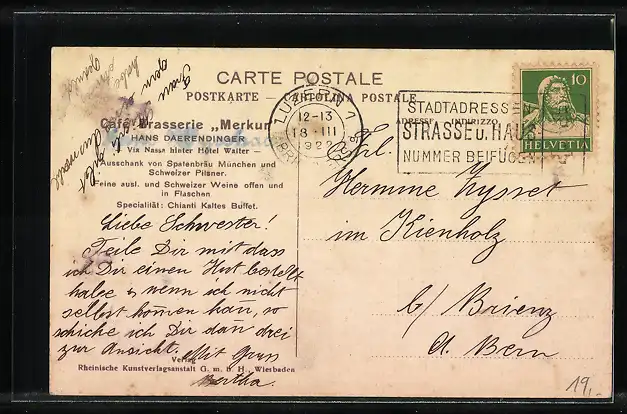 CARTE POSTALE
POSTKARTE — CARTOLINA POSTALE
Café-Brasserie „Merkur"
HANS DAERENDINGER
Via Nassa hinter Hôtel Walter
Ausschank von Spatenbräu München und
Schweizer Pilsner.
Feine ausl. und Schweizer Weine offen und
in Flaschen.
Specialität: Chianti Kaltes Büffet.
Liebe Schwester!
Teile Dir mit dass
ich Dir einen Hut bestellt
habe & wenn ich nicht
selbst kommen kan, so
schicke ich Dir dan drei
zur Ansicht. Mit Gruss
Bertha.
Verlag
Rheinische Kunstverlagsanstalt G. m. b. H., Wiesbaden
LUZERN 1
12-13
18 III
1922
STADTADRESSEN
STRASSE u. HAUS
NUMMER BEIFÜGEN
10
HELVETIA
ADRESSE INDIRIZZO
Frl.
Hermine Zysset
im Kienholz
b/ Brienz
Ct. Bern
19,-